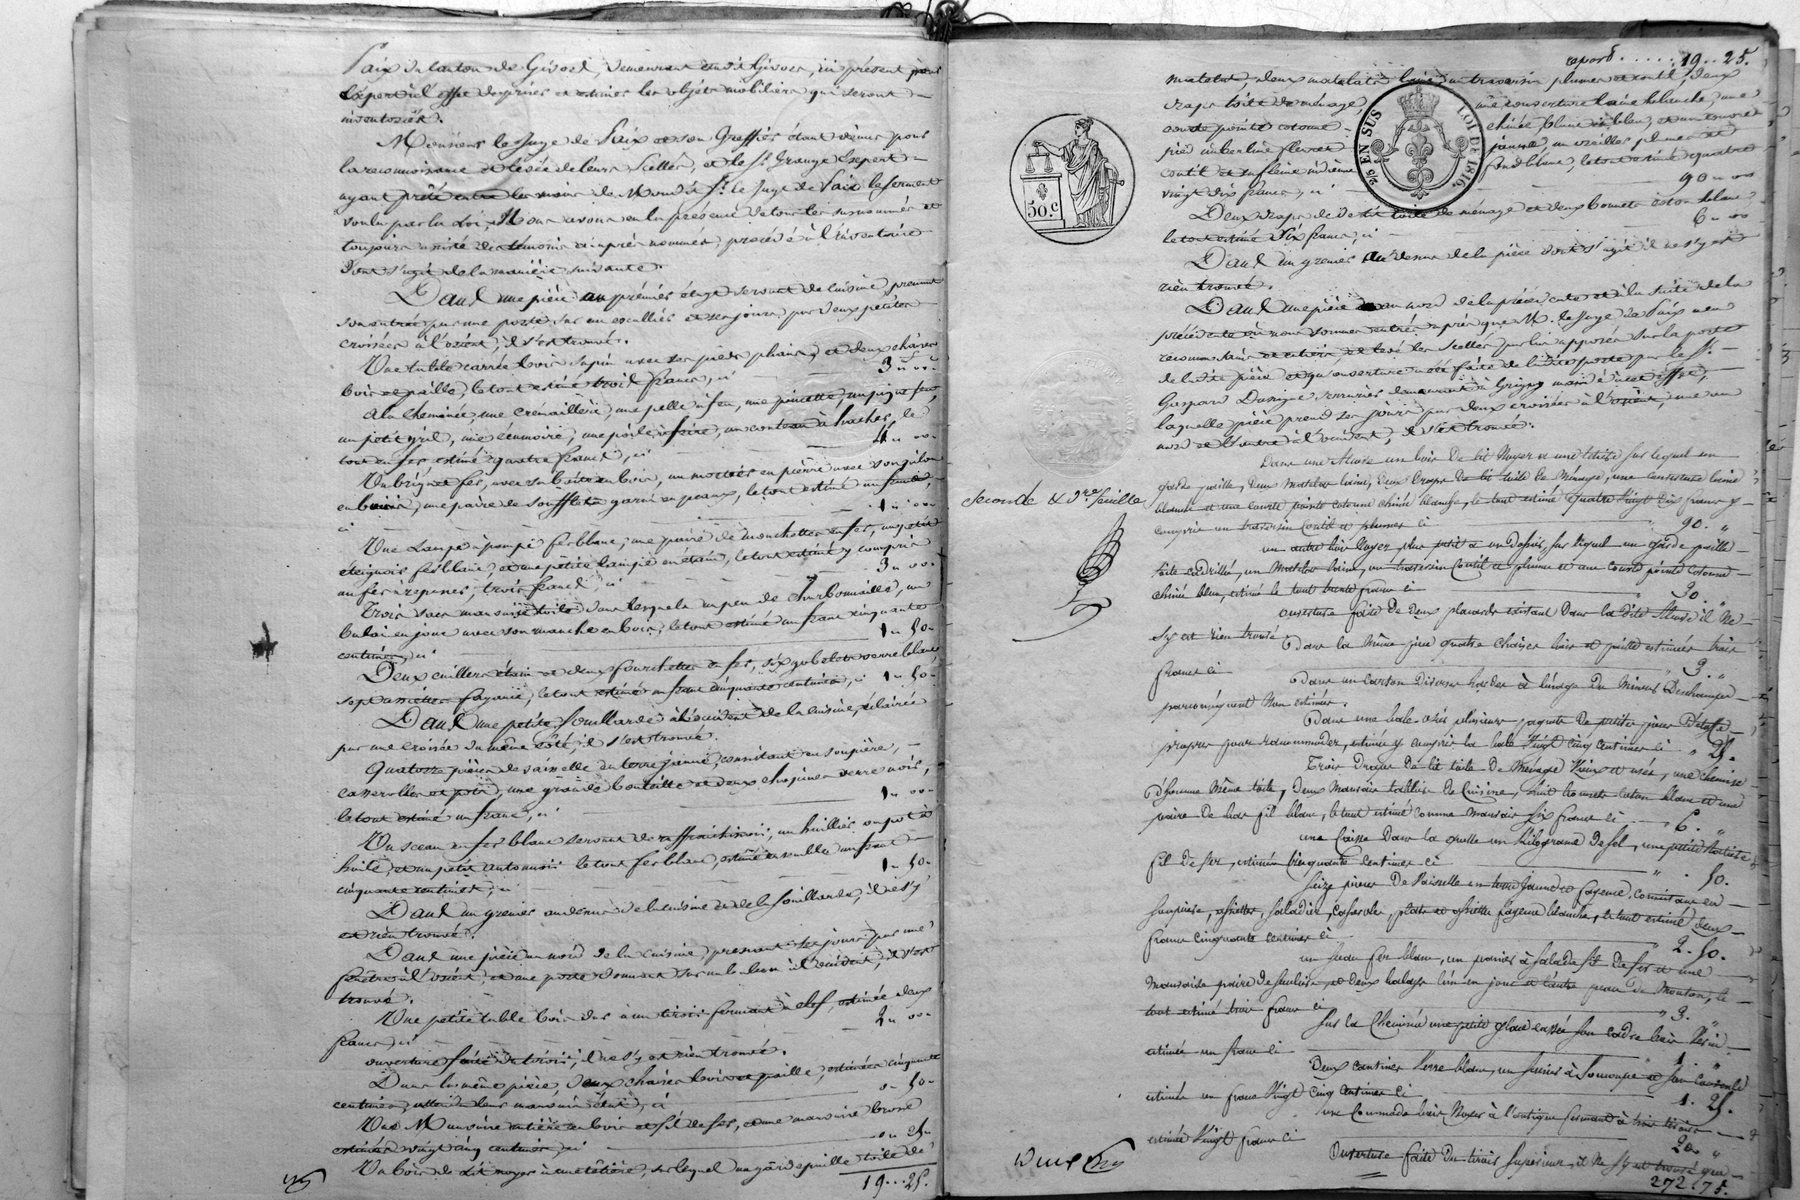 Paix du canton de Givors, demeurant audit Givors, ici présent pour
l'expert à l'effet de priser et estimer les objets mobiliers qui seront
inventoriés.
Messieurs le Juge de Paix et son Greffier étant venus pour
la reconnoissance et levée de leurs Scellés, et le Sr. Grange Expert
ayant prêté entre les mains de Mondit Sr. le Juge de Paix le serment
voulu par la Loi, Nous avons en la présence de tous les susnommés et
toujours assisté des témoins ci après nommés, procédé à l'inventaire
dont s'agit de la manière suivante.
Dans une pièce au prémier étage servant de cuisine, prenant
son entrée par une porte sur un escallier et ses jours par deux petites
croisées à l'orient, il s'est trouvé.
Une table carrée bois sapin avec ses pieds pliants, et deux chaises
bois et paille, le tout estimé trois francs, ci 3 " 00 "
A la cheminée, une crémaillère, une pelle à feu, une pincette,
un petit gril, une écumoire, une poële à frire, un couteau à hacher, le
tout en fer estimé quatre francs, ci 4 " 00 "
en bois, une paire de soufflets garni en peaux, le tout estimé un franc,
ci 1 " 00 "
Une Lampe à pompe ferblanc, une paire de mouchettes en fer, un petit
éteignoir ferblanc, et une petite lampe en étain, le tout estimé y compris
un fer à repasser, trois francs, ci 3 " 00 "
Trois sacs mauvaise toile dans lesquels un peu de charbonnailles, un
balai en jonc avec son manche en bois, le tout estimé un franc cinquante
centimes, ci 1 " 50 "
Deux cuillers étain et deux fourchettes en fer, six gobelets verre blanc
sept assiettes fayence, le tout estimé un franc cinquante centimes, ci 1 " 50 "
Dans une petite souillarde à l'occident de la cuisine, éclairée
par une croisée du même côté, il s'est trouvé.
Quatorze pièces de vaisselle de terre jaune, consistant en soupière,
casserolles et pots, une grande bouteille et deux chopines verre noir,
le tout estimé un franc, ci 1 " 00 "
Un sceau en fer blanc servant de raffraichissoir, un huillier, un pot à
huile, et un petit antonnoir le tout fer blanc, estimé ensemble un franc
cinquante centimes, ci 1 " 50 "
Dans un grenier au dessus de la cuisine et de la souillarde, il ne s'y
est rien trouvé.
Dans une pièce au nord de la cuisine, prenant ses jours par une
fenêtre à l'orient, et une porte donnant sur un balcon à l'occident, il s'est
trouvé.
Une petite table bois dur à un tiroir fermant à clef, estimée deux
francs, ci 2 " 00 "
ouverture faite du tiroir, il ne s'y est rien trouvé.
Dans la même pièce, deux chaises bois et paille, estimées cinquante
centimes, attendu leur mauvais état, ci 0 " 50 "
estimés vingt cinq centimes, ci 0 " 25 "
Un bois de Lit noyer à une têtière, sur lequel un garde paille toile de
19 . . . 25 "
report . . . . . 19 . . 25.
matelat, deux matelats laine, un traversin plumes et coutil, deux
draps toile de ménage, une couverture laine blanche, une
courte pointe cotonne chinée, blanc et bleu,
vingt dix francs, ci 90 " 00
Deux draps de lit toile de ménage et deux bonnets coton blanc,
le tout estimé Six francs, ci 6 " 00
Dans un grenier au dessus de la pièce dont s'agit il ne s'y est
rien trouvé.
Dans une pièce au nord de la précédente et à la suite de la
précédente où nous sommes entrés après que M. le Juge de Paix a eu
reconnu sains et entiers, et levé les Scellés par lui apposés sur la porte
de la dite pièce et qu'ouverture a été faite de ladite porte par le Sr.
Gaspard Dasique serrurier demeurant à Grigny mandé à cet effet,
laquelle pièce prend ses jours par deux croisées à l'orient, une au
nord et l'autre à l'occident, il s'est trouvé.
Dans une Alcove un bois de lit Noyer à une têtière sur lequel un
garde paille, Deux Matelas laine, deux Draps de lit toile de Ménage, une couverture laine
blanche et une courte pointe cotonne chinée blanche, le tout estimé quatre Vingt Dix francs y
compris un traversin Coutil et plumes ci 90. "
un autre bois Noyer plus petit à un Dossier, sur lequel un garde paille
toile cadrillée, un Matelas laine, un traversin Coutil et plume et une Courte pointe Cotonne
chinée bleu, estimé le tout trente francs ci 30. "
ouverture faite de Deux placards existant Dans la Dite Alcove il Ne
s'y est rien trouvé
Dans la même pièce quatre Chaises bois et paille estimées trois
francs ci 3. "
Dans un carton Diverses hardes à l'usage du Mineur Deschamps
par conséquent Non estimées.
Dans une balle osier plusieurs paquets de petites pièces D'étoffe
propres pour racommoder, estimés y compris la balle Vingt cinq Centimes ci " 25.
Trois Draps de lit toile de Ménage Vieux et usés, une chemise
D'homme Même toile, Deux Mauvais tabliers de Cuisine, huit bonnets Coton blanc et une
paire de bas fil blanc, le tout estimé comme Mauvais Six francs ci 6. "
une Caisse Dans la quelle un kilograme De sel, une petite
fil de fer, estimés Cinquante Centimes ci " . 50.
Seize pièces De Vaisselle en terre jaune et fayence consistant en
soupières, assiettes, saladier, casserole, plats et assiettes fayence blanche, le tout estimé Deux
francs cinquante centimes ci 2. 50.
un seau fer blanc, un panier à salade fil de fer et une
Mauvaise paire de souliers, et deux balays l'un en jonc et l'autre peau de Mouton, le
tout estimé trois francs ci " 3. "
Sur la Cheminée une petite glace cassée son cadre bois Verni
estimée un franc ci 1. "
Deux cantines Verre blanc, un
estimés un franc Vingt cinq Centimes ci 1. 25.
une Commode bois Noyer à l'antique fermant à trois tiroirs
estimée Vingt francs ci 20. "
Ouverture faite du tiroir supérieur, il ne s'y est trouvé que
272. 75.
2/5 EN SUS
LOI DE 1816.
50.c
seconde & Dre. feuille